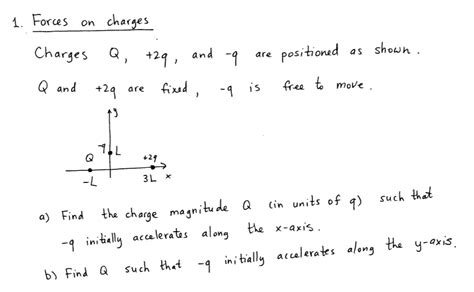 1. Forces on charges
Charges Q, +2q, and -q are positioned as shown.
Q and +2q are fixed, -q is free to move.
y
-q L
Q +2q
-L 3L x
a) Find the charge magnitude Q (in units of q) such that
-q initially accelerates along the x-axis.
b) Find Q such that -q initially accelerates along the y-axis.